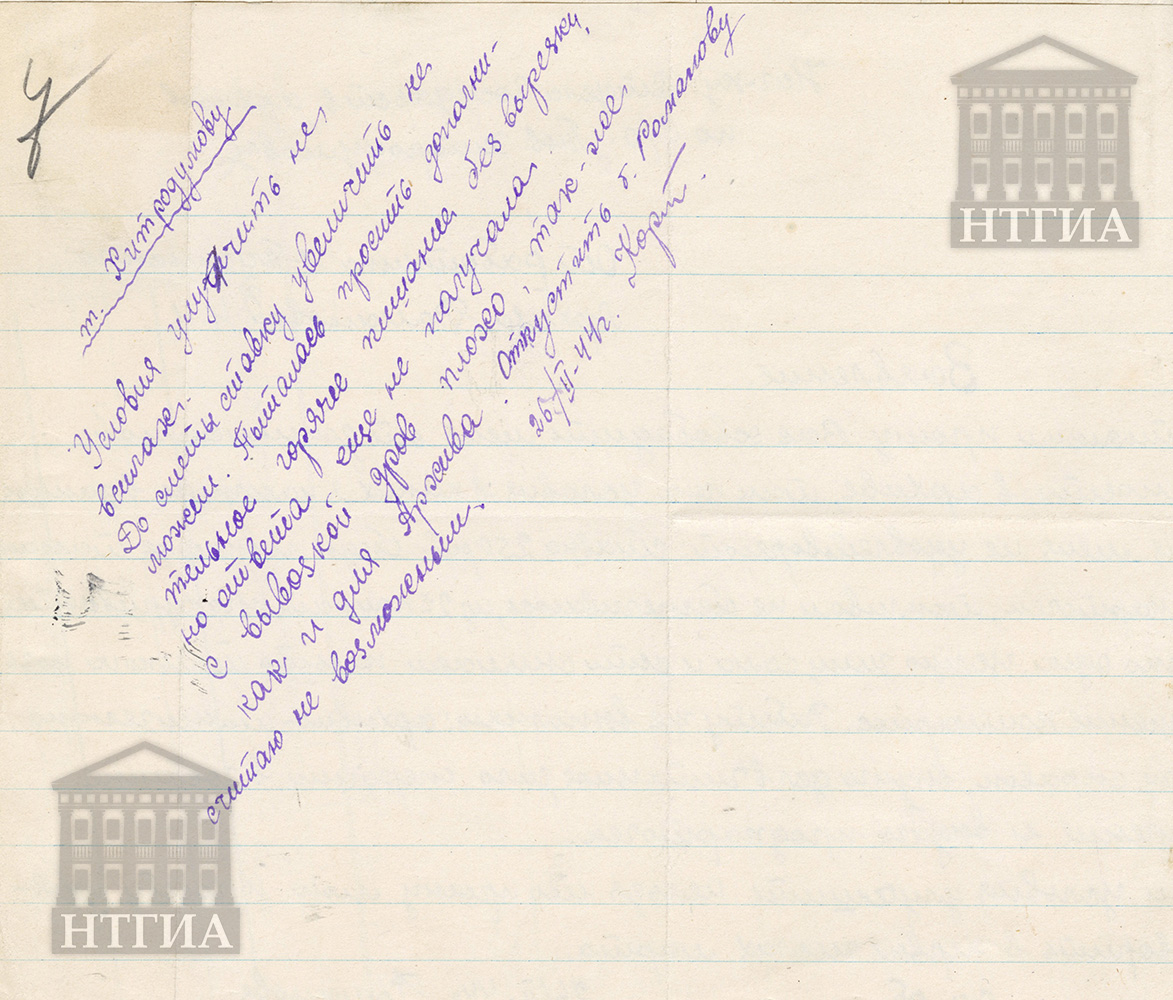 т. Хитродумову
Условия улучшить не,
всилах.
До сметы ставку увеличить не
можем. Пыталась просить дополни-
тельное горячее питание без вырезки,
но ответа еще не получала.
С вывозкой дров плохо, так-же,
как и для Архива. Откустить б. Романову
считаю не возможным.
25/II-44г. Корт.
НТГИА
НТГИА